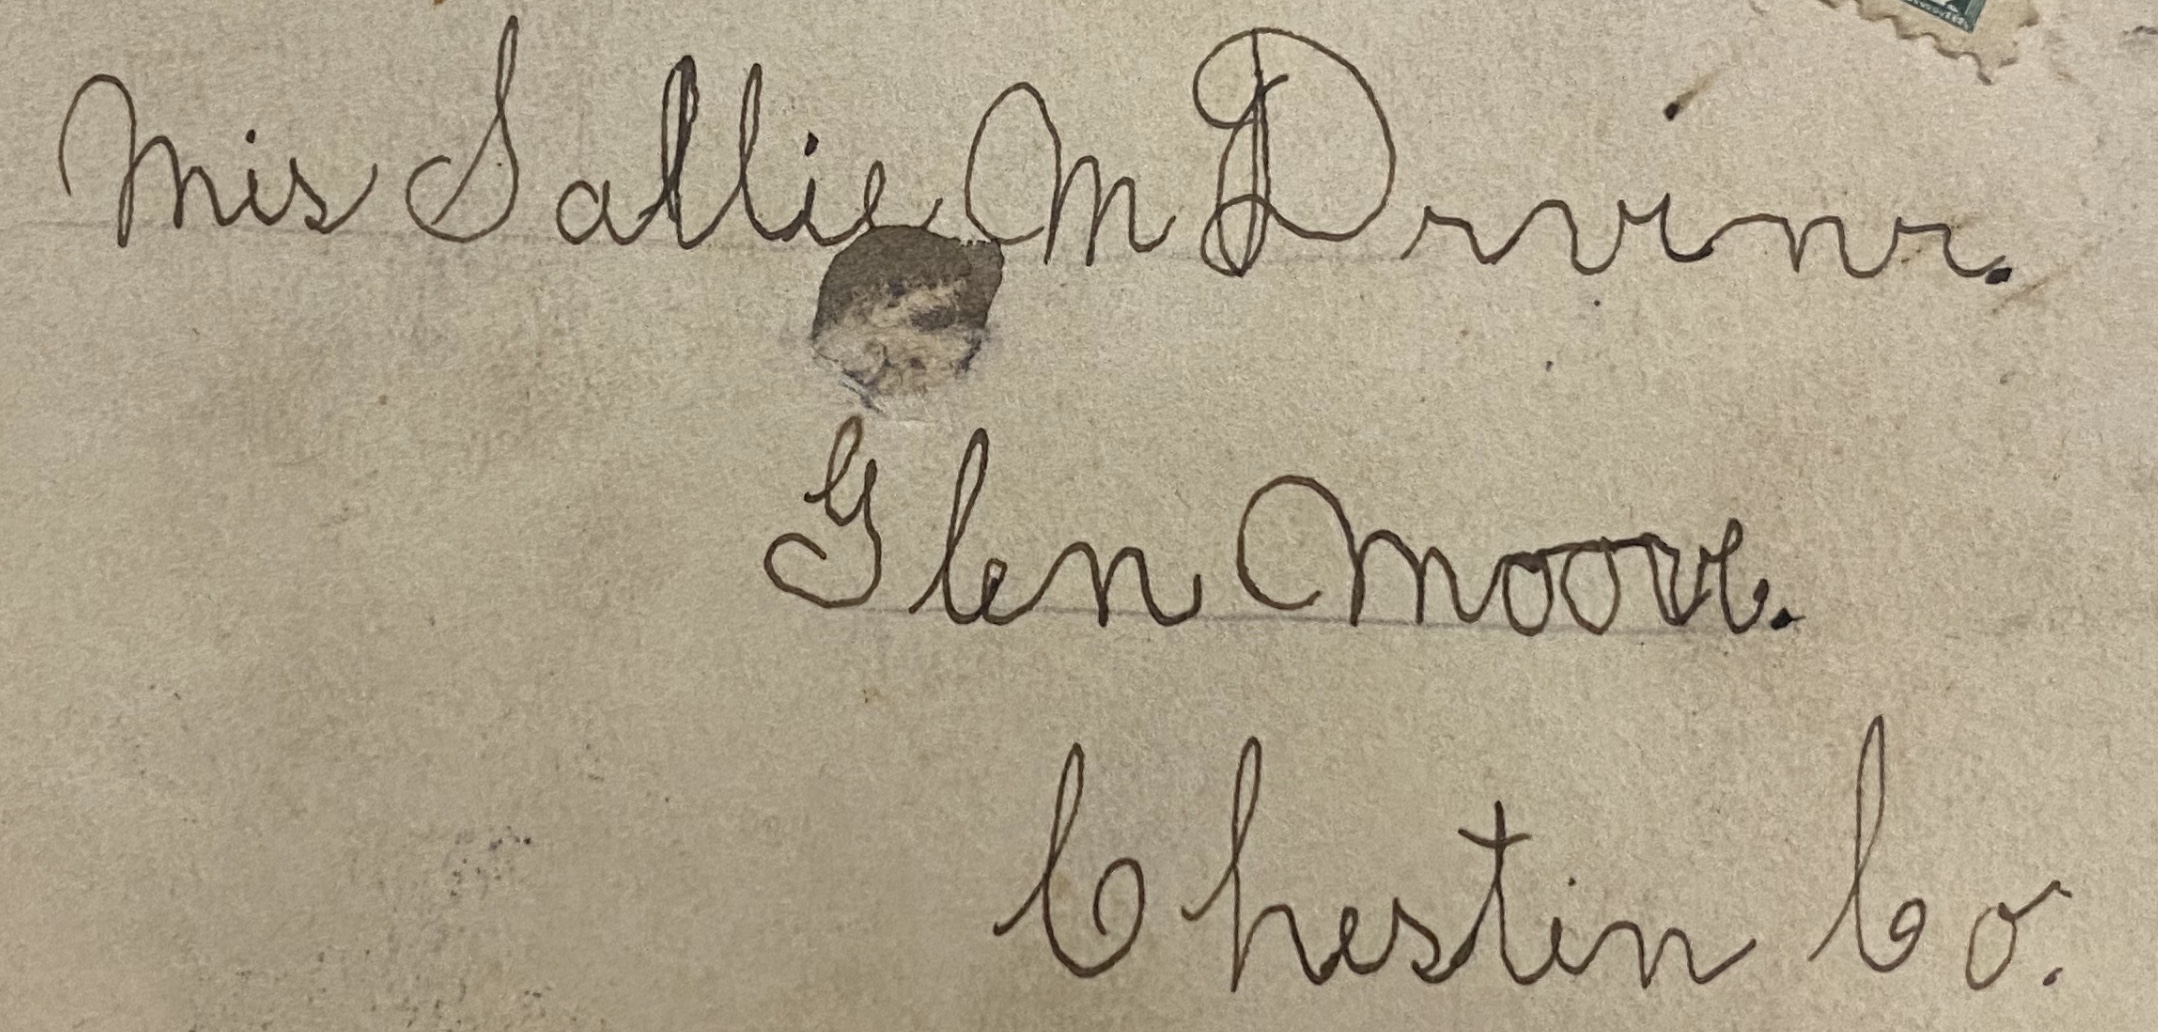 Mis Sallie M Drvinr.
Glen Moore.
Chestin Co.